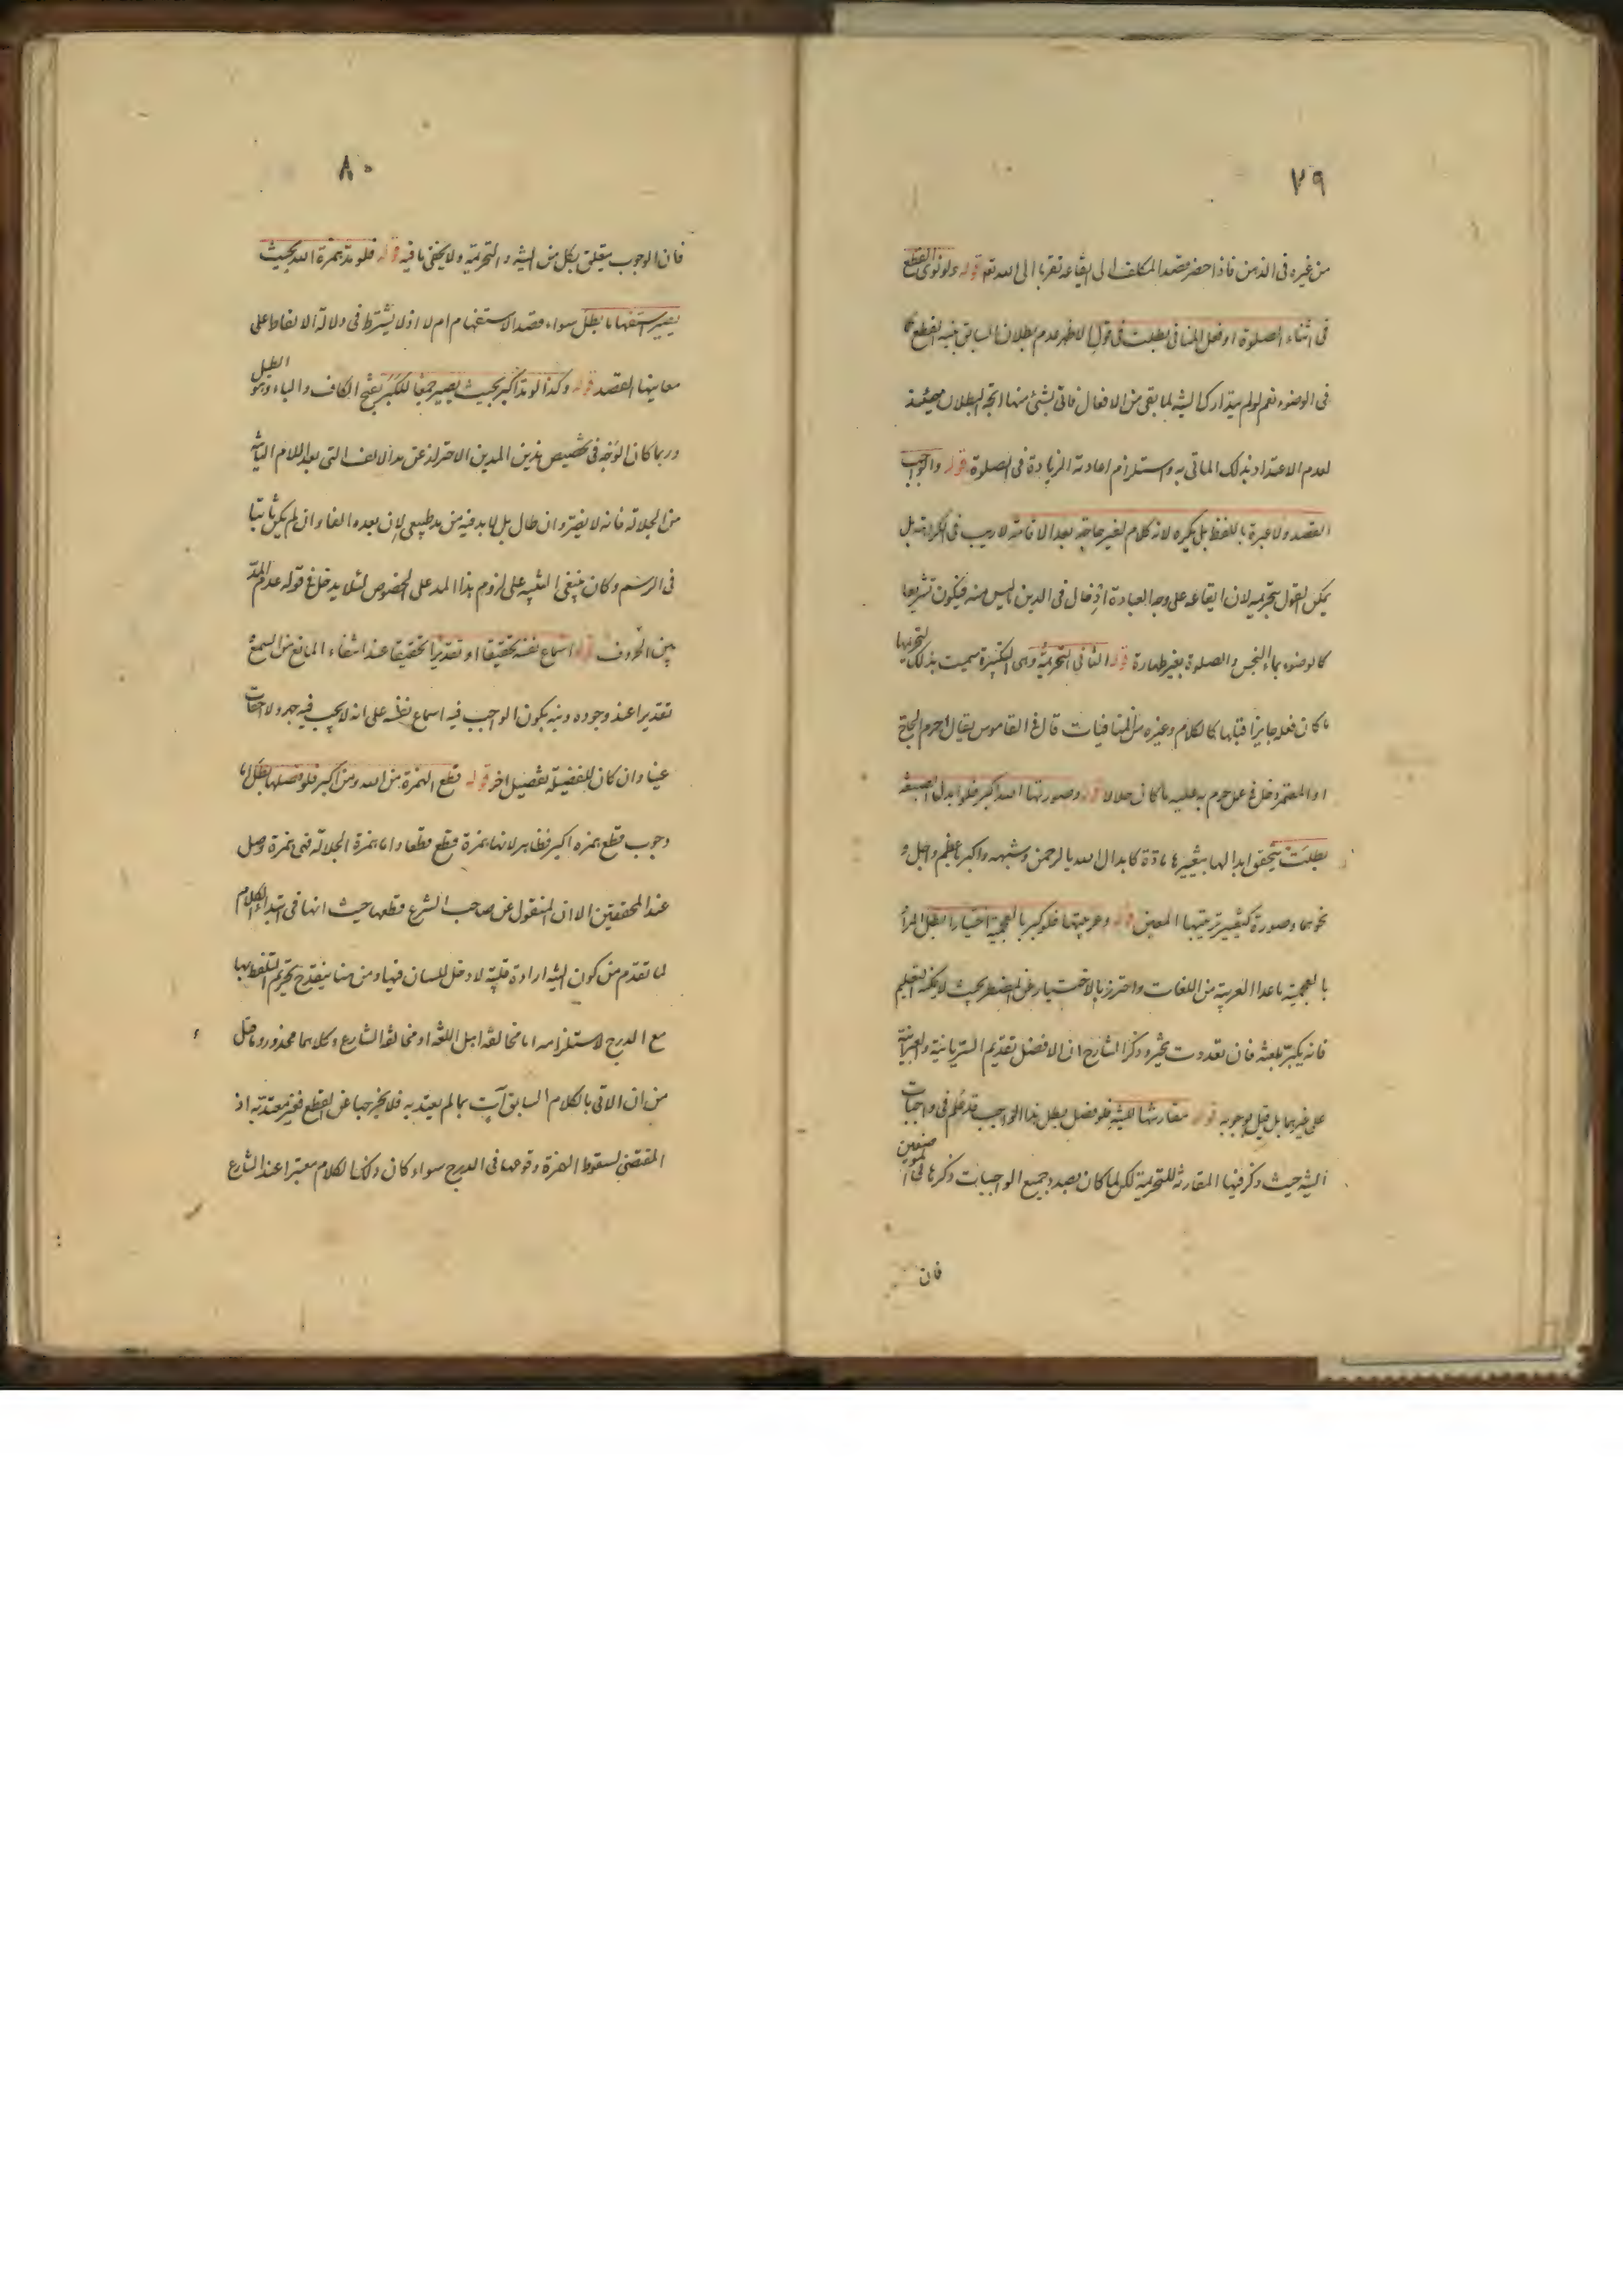 ٧٩
من غيره فى الذهن فاذا حضر قصد المكلف الى ايقاعه تقربا الى الله تعم قوله ولو نوى القطع
فى اثناء الصلوة او فعل المنافى بطلت فى قول الاظهر عدم بطلان السابق بنية القطع كما
فى الوضوء نعم لو لم يتدارك النية لما بقى من الافعال فاتى بشئ منها اتجه البطلان حينئذ
لعدم الاعتداد بذلك الماتى به واستلزام اعادته الزيادة فى الصلوة قوله والواجب
القصد ولا عبرة باللفظ بل يكره لانه كلام لغير حاجة بعد الاقامة لا ريب فى الكراهة بل
يمكن القول بتحريمه لان ايقاعه على وجه العبادة ادخال فى الدين ما ليس منه فيكون تشريعا
كالوضوء بماء النجس والصلوة بغير طهارة قوله الثانى التحريمة وهى التكبيرة سميت بذلك لتحريمها
ما كان فعله جايزا قبلها كالكلام وغيره من المنافيات قال فى القاموس يقال احرم الحاج
او المعتمر دخل فى عمل حرم به عليه ما كان حلالا قوله وصورتها الله اكبر فلو ابدل الصيغة
بطلت يتحقق ابدالها بتغييرها مادة كابدال الله بالرحمن وشبهه واكبر باعظم واجل و
نحوهما وصورة كتغيير ترتيبها المعين قوله وعربيتها فلو كبر بالعجمية اختيارا بطل المراد
بالعجمية ما عدا العربية من اللغات واحترز بالاختيار عن المضطر بحيث لا يمكنه التعليم
فانه يكبر بلغته فان تعددت تخير وذكر الشارح ان الافضل تقديم السريانية والعبرانية
على غيرهما بل قيل بوجوبه قوله مقارنتها للنية فلو فصل بطل هذا الواجب قد علم فى واجبات
النية حيث ذكر فيها المقارنة للتحريمة لكن لما كان بصدد جميع الواجبات ذكرها فى الموضعين
فان
٨٠
فان الوجوب يتعلق بكل من النية والتحريمة ولا يخفى ما فيه قوله فلو مد همزة الله بحيث
يصير استفهاما بطل سواء قصد الاستفهام ام لا اذ لا يشترط فى دلالة الالفاظ على
معانيها القصد قوله وكذا لو مد اكبر بحيث يصير جمعا للكبر بفتح الكاف والباء وهو الطبل
وربما كان الوجه فى تخصيص هذين المدين الاحتراز عن مد الالف التى بعد اللام الثانية
من الجلالة فانه لا يضر وان طال بل لا بد فيه من مد طبيعى لان بعده الفا وان لم يكن ثابتا
فى الرسم وكان ينبغى التنبيه على لزوم هذا المد على الخصوص لئلا يدخل فى قوله عدم المد
بين الحروف قوله اسماع نفسه تحقيقا او تقديرا تحقيقا عند انتفاء المانع من السمع
تقديرا عند وجوده ونبه بكون الواجب فيه اسماع نفسه على انه لا يجب فيه جهر ولا اخفات
عينا وان كان للفضيلة تفصيل اخر قوله قطع الهمزة من الله ومن اكبر فلو وصلها بطل اما
وجوب قطع همزه اكبر فظاهر لانها همزة قطع قطعا واما همزة الجلالة فهى همزة وصل
عند المحققين الا ان المنقول عن صاحب الشرع قطعها حيث انها فى ابتداء الكلام
لما تقدم من كون النية ارادة قلبية لا دخل للسان فيها ومن هنا ينقدح تحريم التلفظ بها
مع الدرج لاستلزامه اما مخالفة اهل اللغة او مخالفة الشارع وكلاهما محذور وما قيل
من ان الاتى بالكلام السابق آت بما لم يعتد به فلا يخرجها عن القطع فغير معتد به اذ
المقتضى لسقوط الهمزة وقوعها فى الدرج سواء كان ذلك الكلام معتبرا عند الشارع